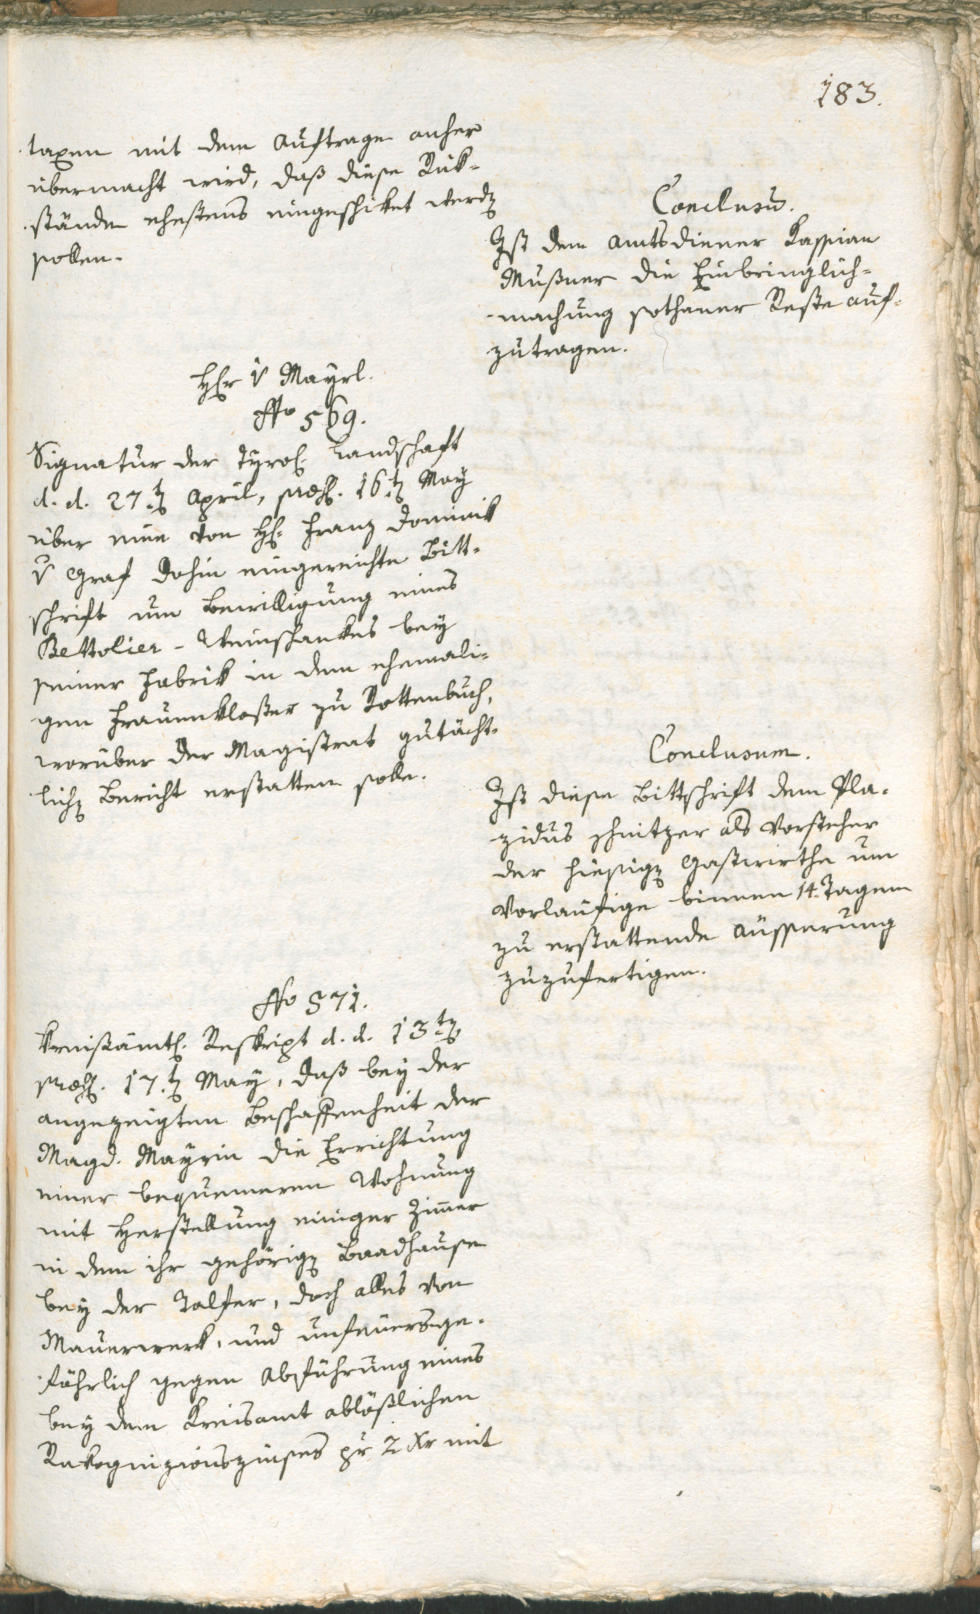 183.
taxen mit dem Auftrage anher
übermacht wird, daß diese Rük-
stände ehestens eingeschiket werdẽ
sollen.
Conclusũ.
Ist dem Amtsdiener Kassian
Mußner die Einbringlich-
machung sothaner Reste auf-
zutragen.
Hr v Mayrl.
No 569.
Signatur der tyrol. Landschaft
d. d. 27.tẽ April, præs. 16tẽ May
über eine von H. Franz Dominik
v Graf dohin eingereichte Bitt-
schrift um Bewilligung eines
Bettolier-Weinschankes bey
seiner Fabrik in dem ehemali-
gen Frauenkloster zu Rottenbuch,
worüber der Magistrat gutächt-
lichẽ Bericht erstatten solle.
Conclusum.
Ist diese Bittschrift dem Pla-
zidus Schnitzer als Vorsteher
der hiesigẽ Gastwirthe um
vorläufige binnen 14. Tagen
zu erstattende Äusserung
zuzufertigen.
No 571.
Kreisämtl. Reskript d. d. 13tẽ
præs. 17.tẽ May, daß bey der
angezeigten Beschaffenheit der
Magd. Mayrin die Errichtung
einer bequemeren Wohnung
mit Herstellung einiger Zimer
in dem ihr gehörigẽ Baadhause
bey der Talfer, doch alles von
Mauerwerk, und unfeuersge-
fährlich gegen Abführung eines
bey dem Kreisamt ablößlichen
Rekognizionszinses pr 2 Xr mit